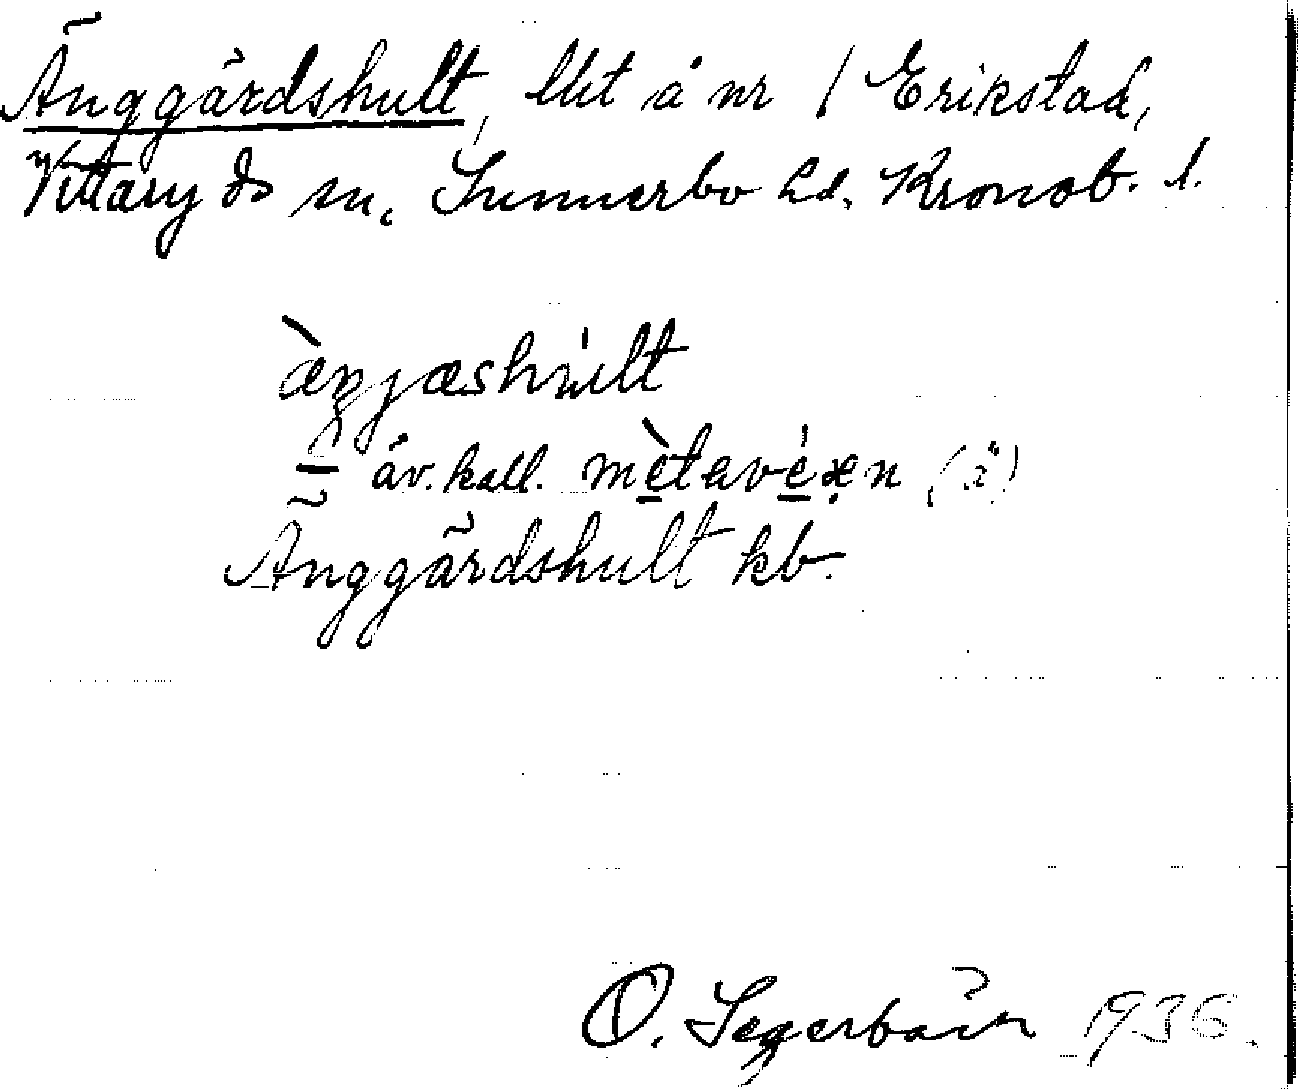 Änggårdshult, lht å nr 1 Erikstad,
Vittaryds sn. Sunnerbo hd. Kronob. l.
æ̀ŋjæshúlt
= äv. kall. mètavéxen (ä)
Änggårdshult kb.
O. Segerbäck 1936.